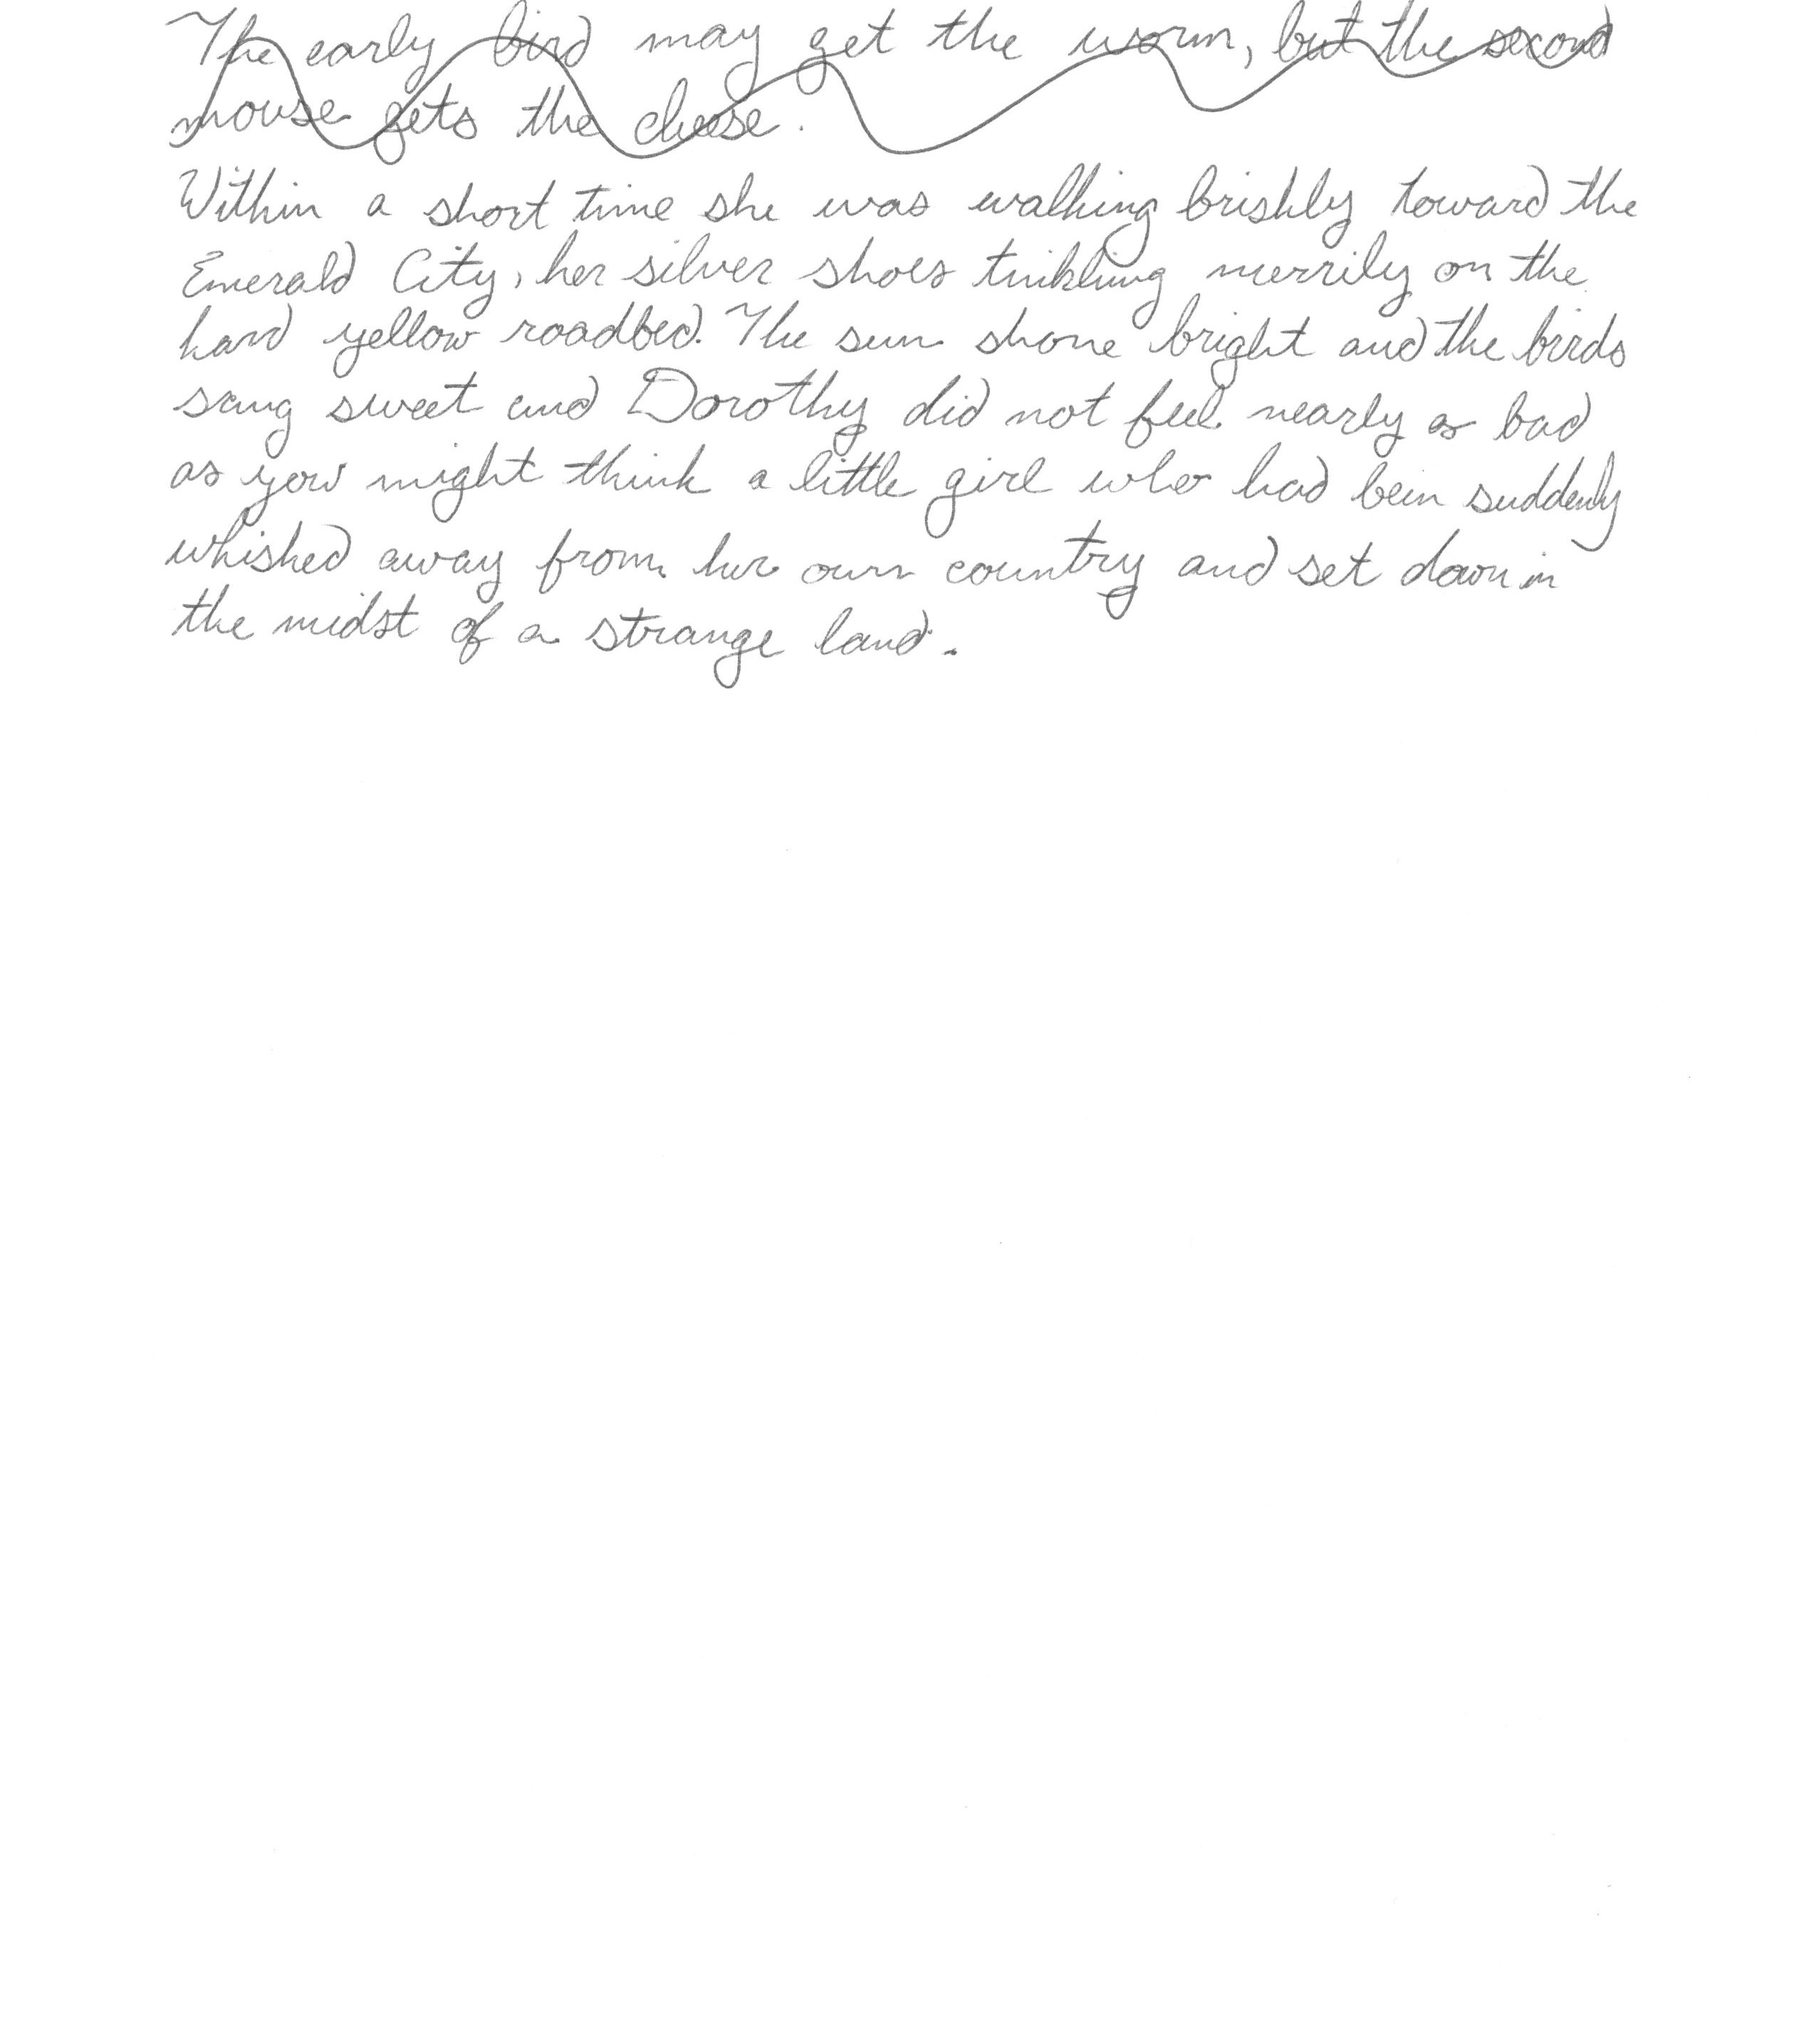 The early bird may get the worm, but the second
mouse gets the cheese.
Within a short time she was walking briskly toward the
Emerald City, her silver shoes tinkling merrily on the
hard yellow roadbed. The sun shone bright and the birds
sang sweet and Dorothy did not feel nearly as bad
as you might think a little girl who had been suddenly
whisked away from her own country and set down in
the midst of a strange land.